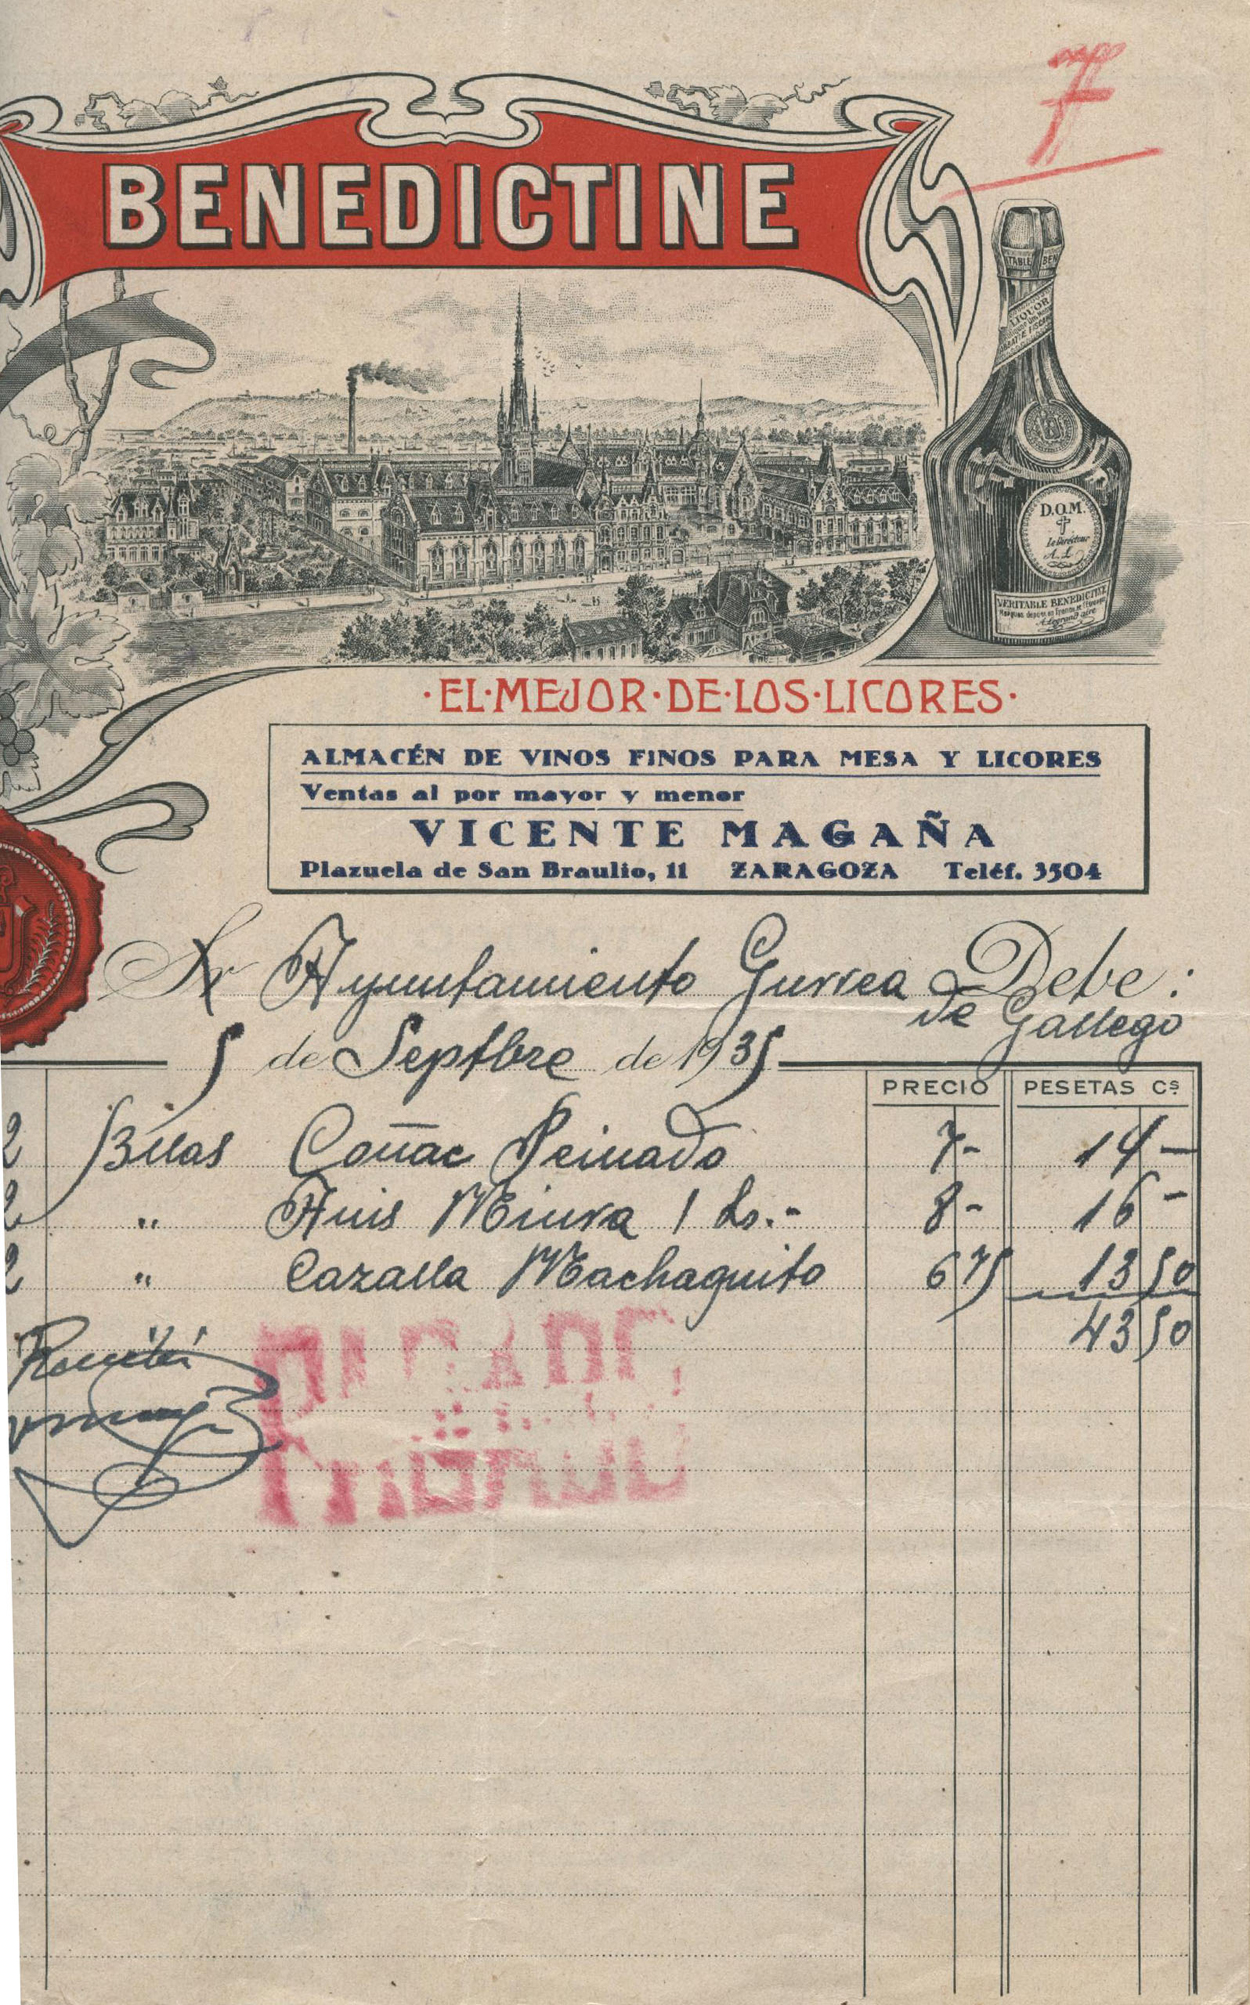 7
BENEDICTINE
TABLE BEN
LIQUOR
D.O.M.
le Directeur
A. L.
VERITABLE BENEDICTINE
·EL·MEJOR·DE·LOS·LICORES·
ALMACÉN DE VINOS FINOS PARA MESA Y LICORES
Ventas al por mayor y menor
VICENTE MAGAÑA
Plazuela de San Braulio, 11 ZARAGOZA Teléf. 3504
Sr Ayuntamiento Gurrea de Gallego Debe:
5 de Septbre de 1935
PRECIO PESETAS Cs
2 Bllas Coñac Peinado 7- 14-
2 " Anis Miura 1 Ls.- 8- 16-
2 " Cazalla Machaquito 6 75 13 50
43 50
Recibí